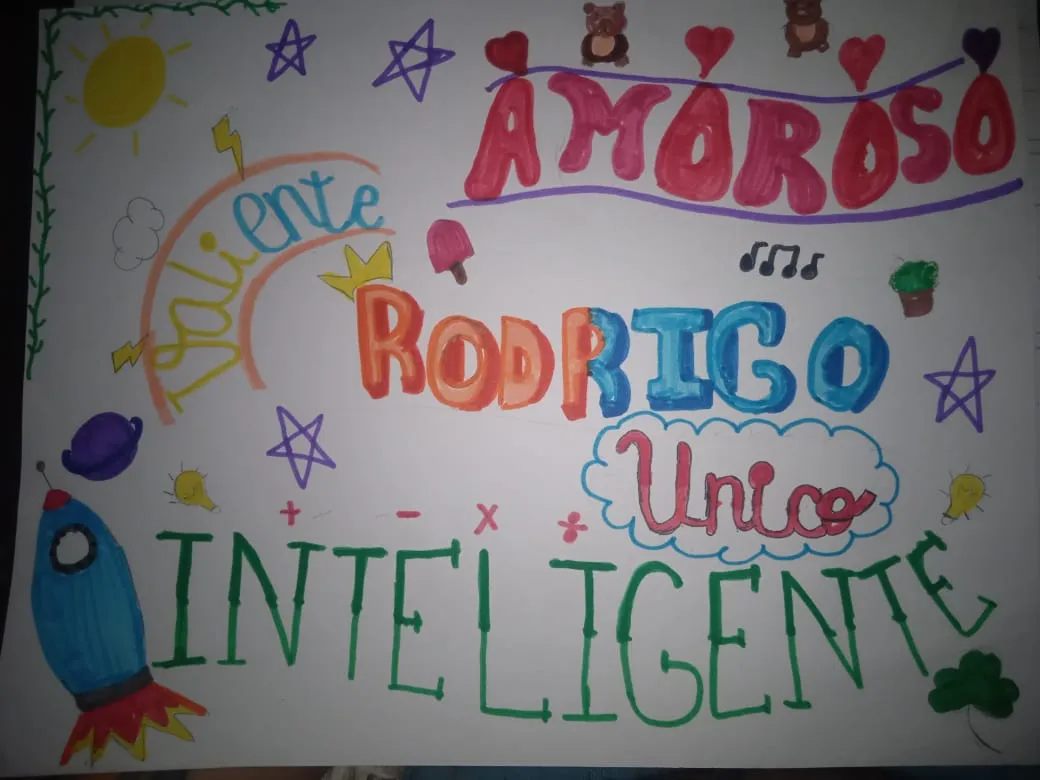 AMOROSO
Valiente
RODRIGO
Unico
+ - x ÷
INTELIGENTE